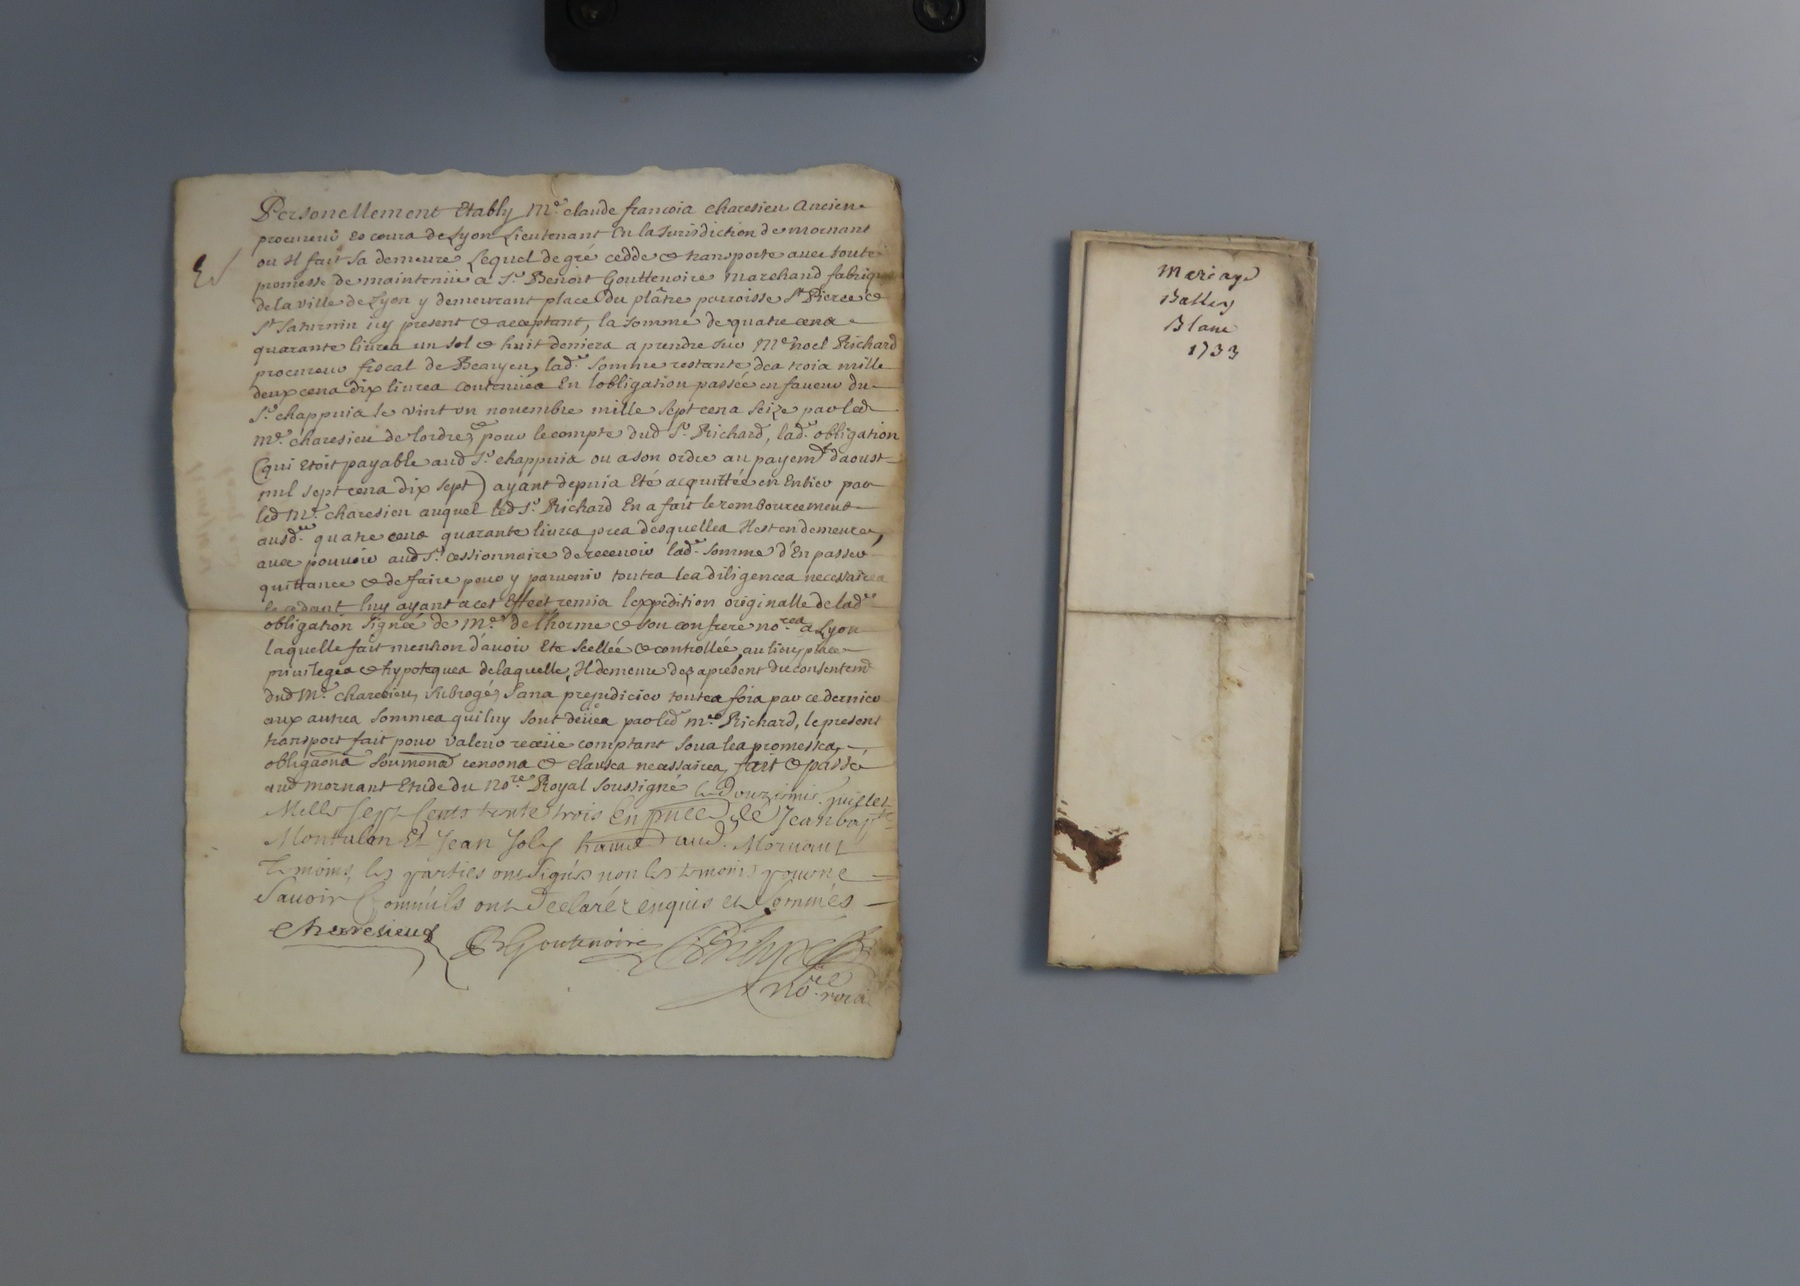 Personellement Etably Me. claude francois charesieu Ancien
procureur es cours de Lyon Lieutenant En la Jurisdiction de mornant
ou Il fait sa demeure Lequel de gré cedde & transporte avec toute
promesse de maintenüe a Sr. Benoit Gouttenoire marchand fabriq
de la ville de Lyon y demeurant place du plâtre parroisse St Pierre &
St Saturnin icy present & acceptant, la somme de quatre cens
quarante livres un sol & huit deniers a prendre sur Me noel Richard
procureur fiscal de , lade. somme restante des trois mille
deux cens dix livres contenües En l'obligation passée en faveur du
Sr. chappuis le vint un novembre mille sept cens seize par led
Me. charesieu de l'ordre, & pour le compte dud Sr. Richard, lade. obligation
(qui Etoit payable aud Sr. chappuis ou a son ordre au payemt d'aoust
mil sept cens dix sept) ayant depuis Eté acquittée en Entier par
led Me. charesieu auquel led Sr. Richard En a fait le remboursement
ausd. quatre cens quarante livres pres desquelles Il est en demeure,
avec pouvoir aud Sr. cessionnaire de recevoir lade. somme d'En passer
quittance & de faire pour y parvenir toutes les diligences necessaires
le cedant luy ayant a cet Effect remis l'expedition originalle de lade.
obligation signée de Me. delhorme & son confrere nores a Lyon
laquelle fait mention d'avoir Eté scellée & controllée, au lieu, place
privileges & hypoteques de laquelle, Il demeure dez apresent du consentemt
dud Me. charesieu, subrogé, sans prejudicier toutes fois par ce dernier
aux autres sommes qui luy sont deües par led me. Richard, le present
transport fait pour valeur reçeüe comptant sous les promesses,
obligaons soumons renoons & clauses necessaires, fait & passé
aud mornant Etude du nore. Royal soussigné le Douzieme juillet
Mille sept Cents trente trois En pnce de Jean bapte
Montulon Et Jean Joly aud. Mornant
Temoins, les parties ont signés non les temoins pour ne
Savoir Comm'ils ont Declaré enquis et Sommés
Charesieu
B Goutenoire
nore. roial
Mariage
Balley
Blanc
1733